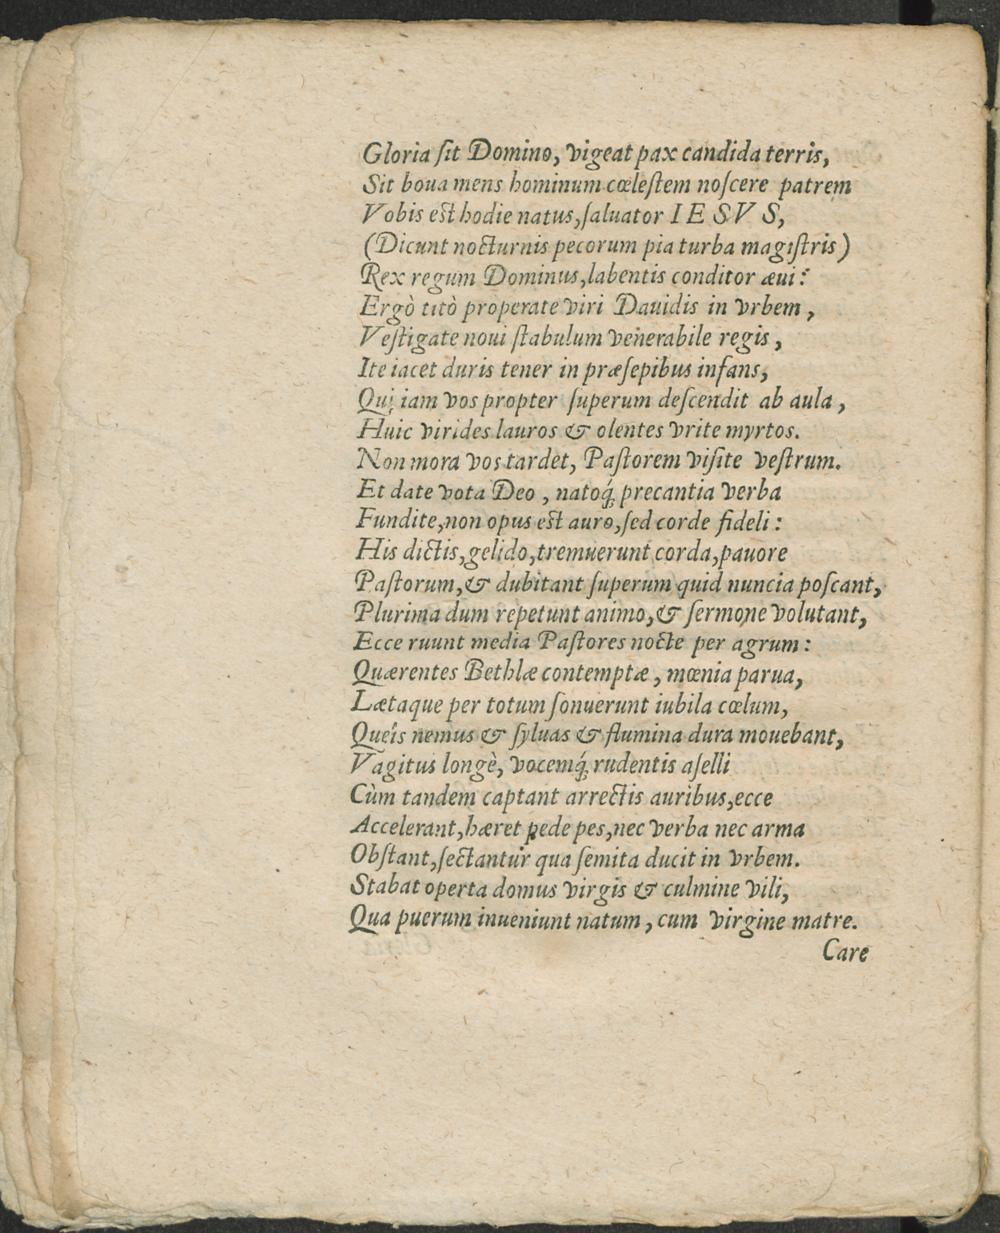 Gloria ſit Domino, vigeat pax candida terris,
Sit boua mens hominum cœleſtem noſcere patrem
Vobis eſt hodie natus, ſaluator IESVS,
(Dicunt nocturnis pecorum pia turba magiſtris)
Rex regum Dominus, labentis conditor æui:
Ergò titò properate viri Dauidis in vrbem,
Veſtigate noui ſtabulum venerabile regis,
Ite iacet duris tener in præſepibus infans,
Qui iam vos propter ſuperum deſcendit ab aula,
Huic virides lauros & olentes vrite myrtos.
Non mora vos tardet, Paſtorem viſite veſtrum.
Et date vota Deo, natoq́; precantia verba
Fundite, non opus eſt auro, ſed corde fideli:
His dictis, gelido, tremuerunt corda, pauore
Paſtorum, & dubitant ſuperum quid nuncia poſcant,
Plurima dum repetunt animo, & ſermone volutant,
Ecce ruunt media Paſtores nocte per agrum:
Quærentes Bethlæ contemptæ, mœnia parua,
Lætaque per totum ſonuerunt iubila cœlum,
Queîs nemus & ſyluas & flumina dura mouebant,
Vagitus longè, vocemq́; rudentis aſelli
Cùm tandem captant arrectis auribus, ecce
Accelerant, hæret pede pes, nec verba nec arma
Obſtant, ſectantur qua ſemita ducit in vrbem.
Stabat operta domus virgis & culmine vili,
Qua puerum inueniunt natum, cum virgine matre.
Care